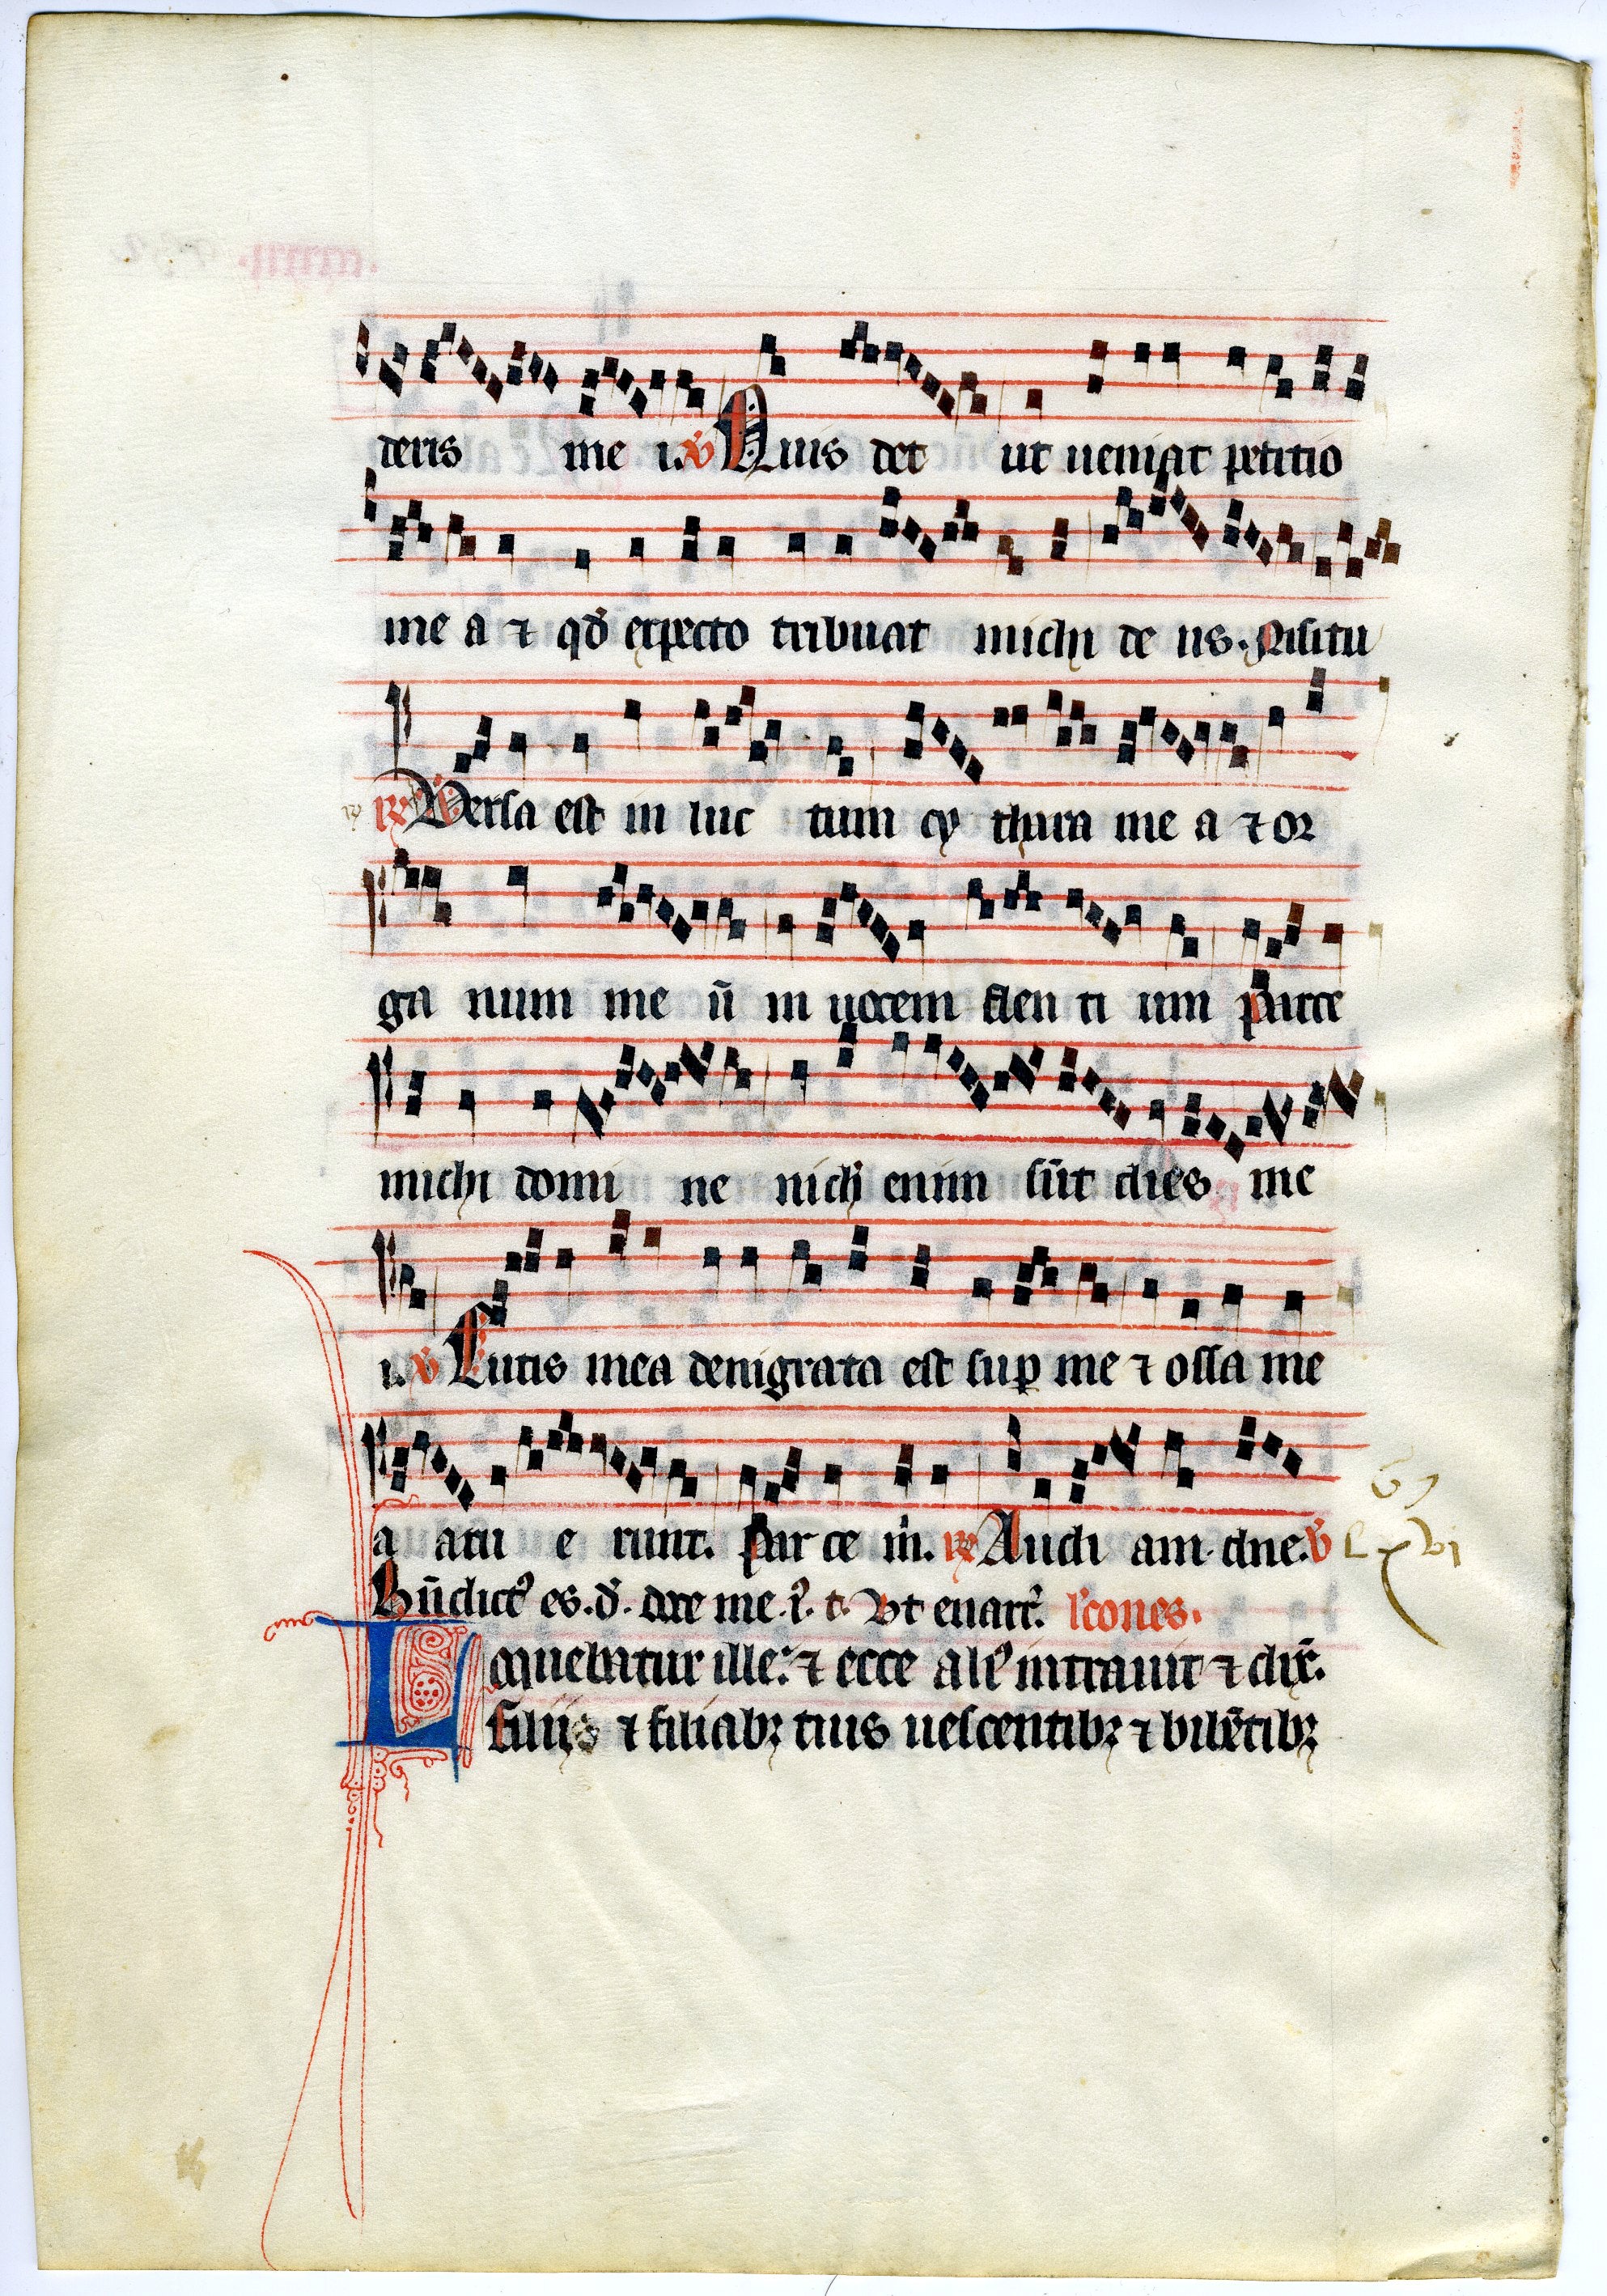 deris me i. ℣ Quis det ut ueniat petitio
me a ⁊ qđ expecto tribuat michi de us. Nisi tu
℟ Uersa est in luc tum cy thara me a ⁊ or
ga num me ū in uocem flen ti um parce
michi domi ne nichˡ enim sūt dies me
i. ℣ Cutis mea denigrata est suꝑ me ⁊ ossa me
a aru e runt. Par ce m̄. ℟ Audi am dne. ℣ Lxvi
Bn̄dictꝰ es. đ. doce me. Ut enarr̄. lc̄ones.
Loquebatur ille: ⁊ ecce aliꝰ intrauit ⁊ dix̄.
filiis ⁊ filiabꝫ tuis uescentibꝫ ⁊ bibētibꝫ